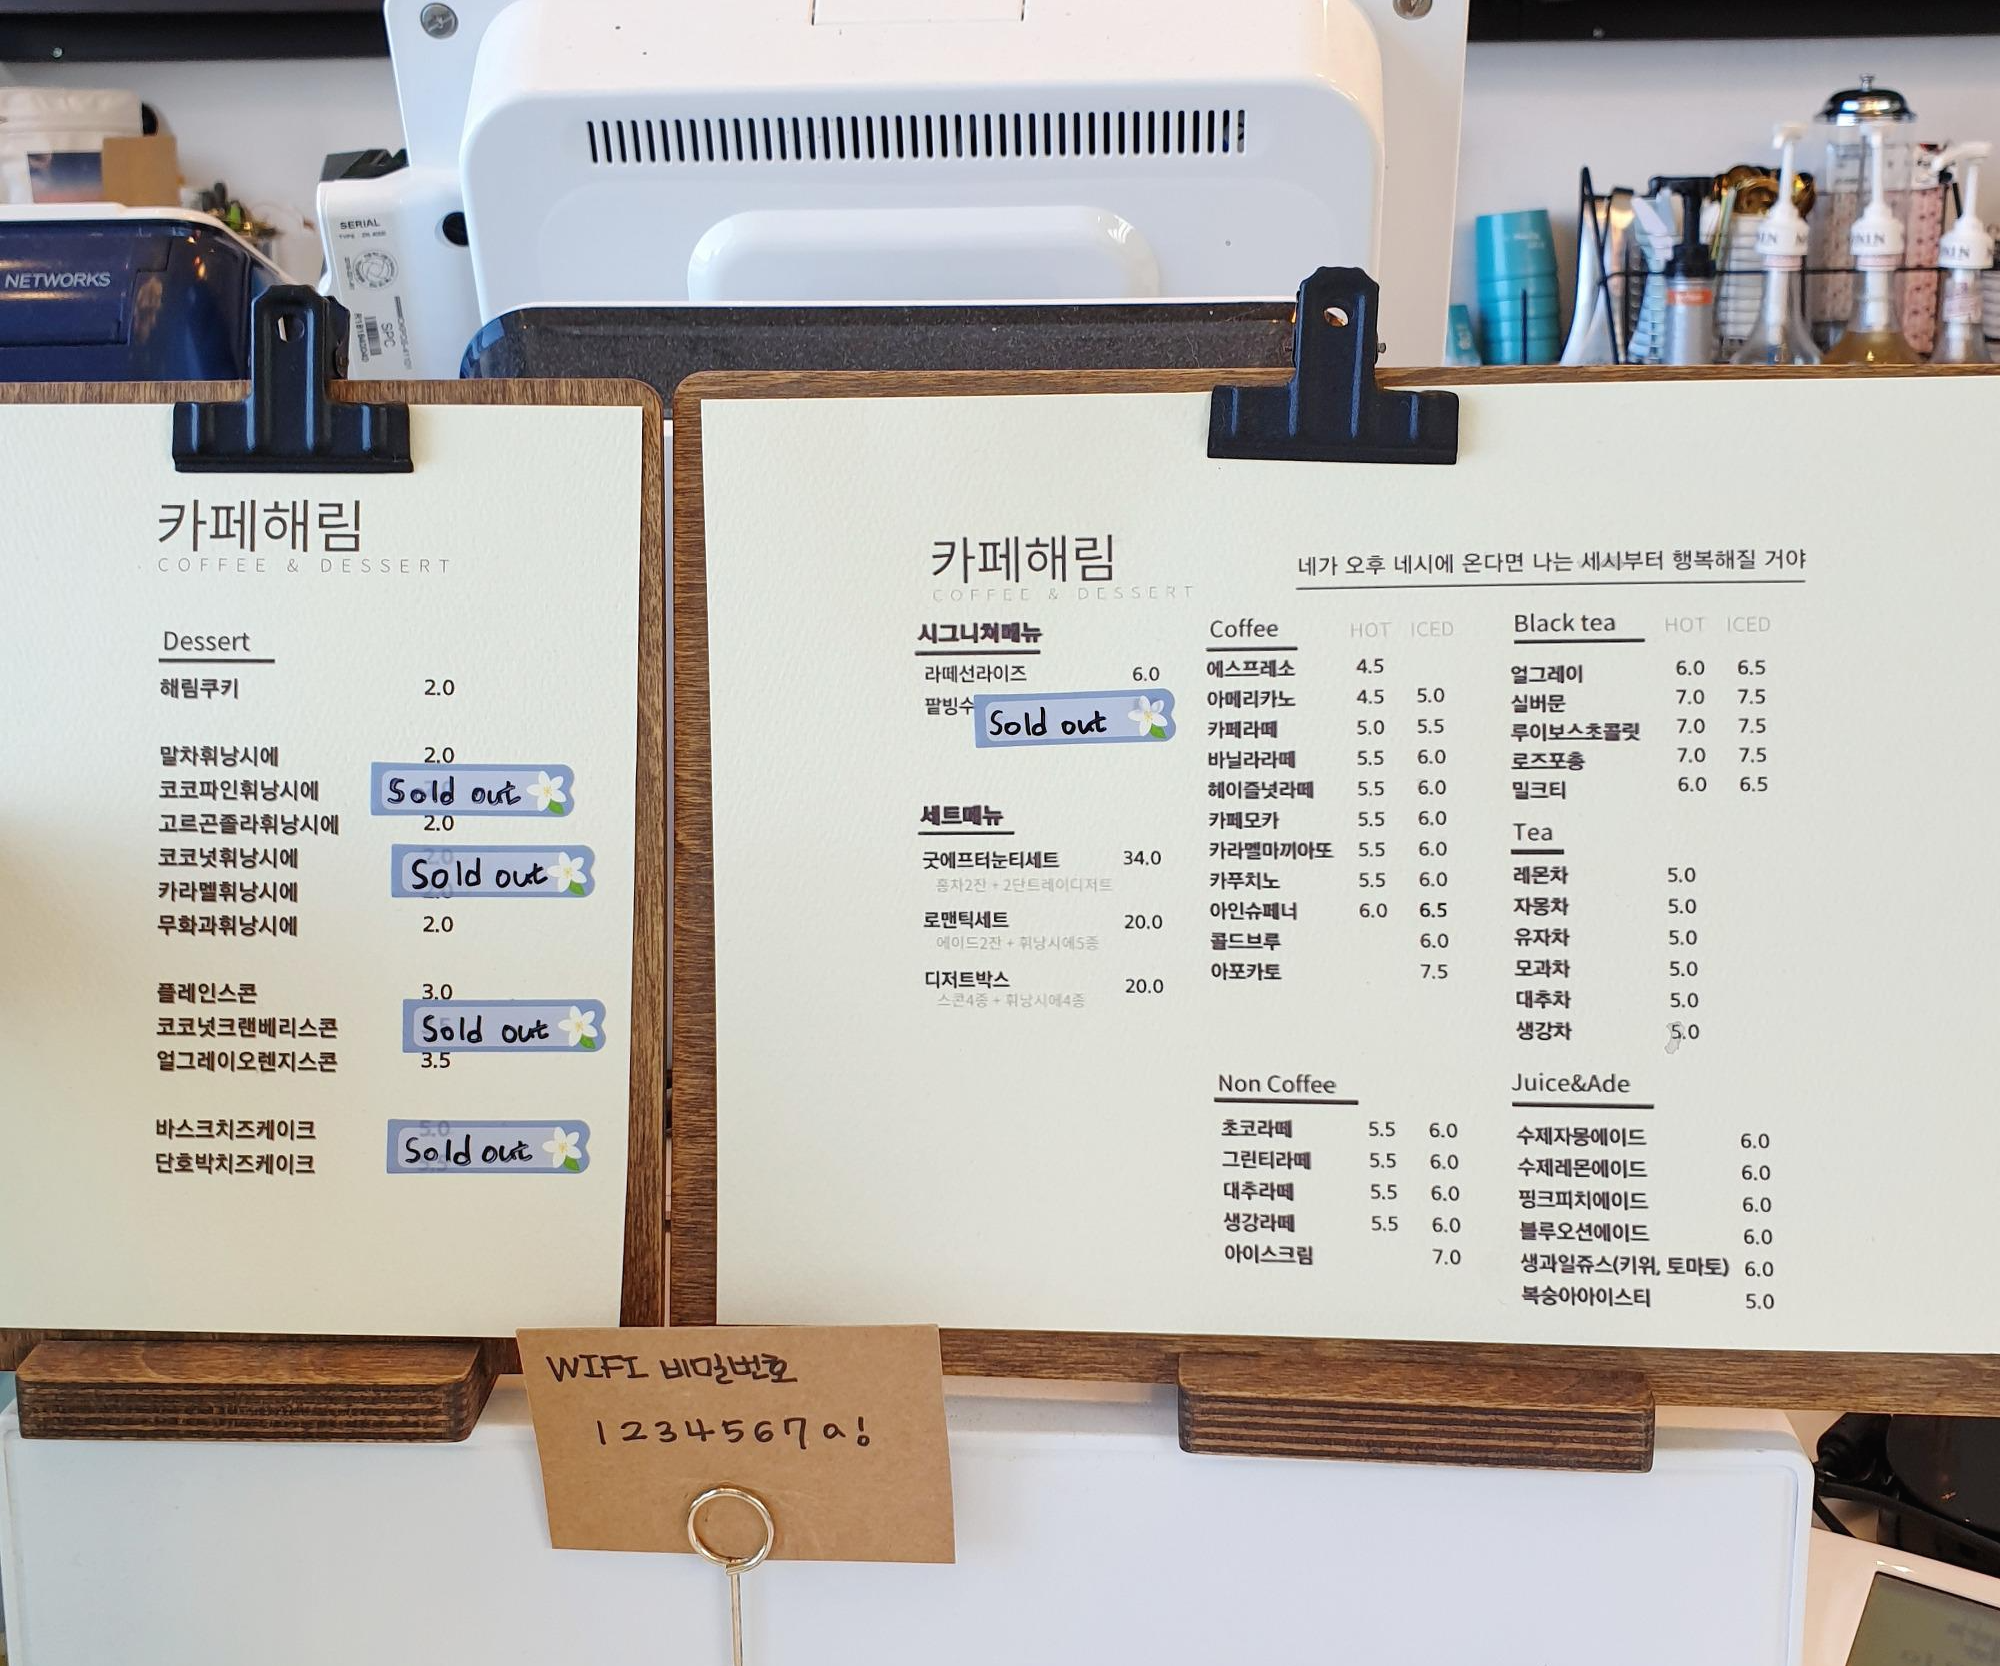 NETWORKS
SERIAL
SPC
카페해림
COFFEE & DESSERT
Dessert
해림쿠키 2.0
말차휘낭시에 2.0
코코파인휘낭시에 Sold out
고르곤졸라휘낭시에 2.0
코코넛휘낭시에 2.0
Sold out
카라멜휘낭시에
무화과휘낭시에 2.0
플레인스콘 3.0
코코넛크랜베리스콘 Sold out
얼그레이오렌지스콘 3.5
바스크치즈케이크 5.0
Sold out
단호박치즈케이크
카페해림
COFFEE & DESSERT
네가 오후 네시에 온다면 나는 세시부터 행복해질 거야
시그니쳐메뉴
라떼선라이즈 6.0
팥빙수 Sold out
세트메뉴
굿에프터눈티세트 34.0
홍차2잔 + 2단트레이디저트
로맨틱세트 20.0
에이드2잔 + 휘낭시에5종
디저트박스 20.0
스콘4종 + 휘낭시에4종
Coffee HOT ICED
에스프레소 4.5
아메리카노 4.5 5.0
카페라떼 5.0 5.5
바닐라라떼 5.5 6.0
헤이즐넛라떼 5.5 6.0
카페모카 5.5 6.0
카라멜마끼아또 5.5 6.0
카푸치노 5.5 6.0
아인슈페너 6.0 6.5
콜드브루 6.0
아포카토 7.5
Non Coffee
초코라떼 5.5 6.0
그린티라떼 5.5 6.0
대추라떼 5.5 6.0
생강라떼 5.5 6.0
아이스크림 7.0
Black tea HOT ICED
얼그레이 6.0 6.5
실버문 7.0 7.5
루이보스초콜릿 7.0 7.5
로즈포총 7.0 7.5
밀크티 6.0 6.5
Tea
레몬차 5.0
자몽차 5.0
유자차 5.0
모과차 5.0
대추차 5.0
생강차 5.0
Juice&Ade
수제자몽에이드 6.0
수제레몬에이드 6.0
핑크피치에이드 6.0
블루오션에이드 6.0
생과일쥬스(키위, 토마토) 6.0
복숭아아이스티 5.0
WIFI 비밀번호
1234567a!